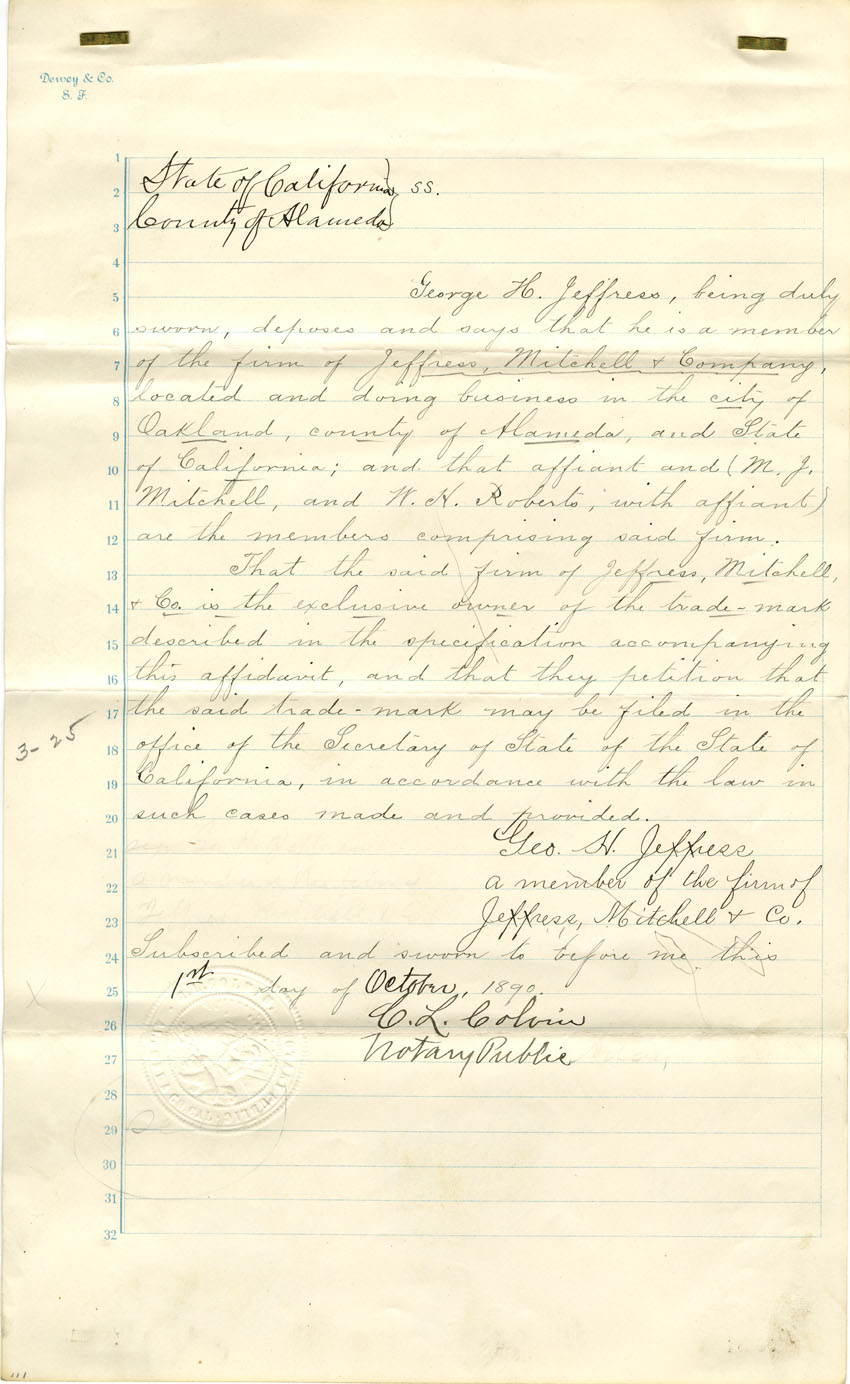 Dewey & Co.
S. F.
1
State of California
2
ss.
County of Alameda
3
4
5
George H. Jeffress, being duly
6
sworn, deposes and says that he is a member
7
of the firm of Jeffress, Mitchell & Company,
8
located and doing business in the city of
9
Oakland, county of Alameda, and State
10
of California; and that affiant and (M. J.
11
Mitchell, and W. H. Roberts, with affiant)
12
are the members comprising said firm.
13
That the said firm of Jeffress, Mitchell,
14
& Co. is the exclusive owner of the trade-mark
15
described in the specification accompanying
16
this affidavit, and that they petition that
17
the said trade-mark may be filed in the
3-25
18
office of the Secretary of State of the State of
19
California, in accordance with the law in
20
such cases made and provided.
21
Geo. H. Jeffress
22
a member of the firm of
23
Jeffress, Mitchell & Co.
24
Subscribed and sworn to before me this
25
1st day of October, 1890.
26
C. L. Colvin
27
Notary Public
28
29
30
31
32